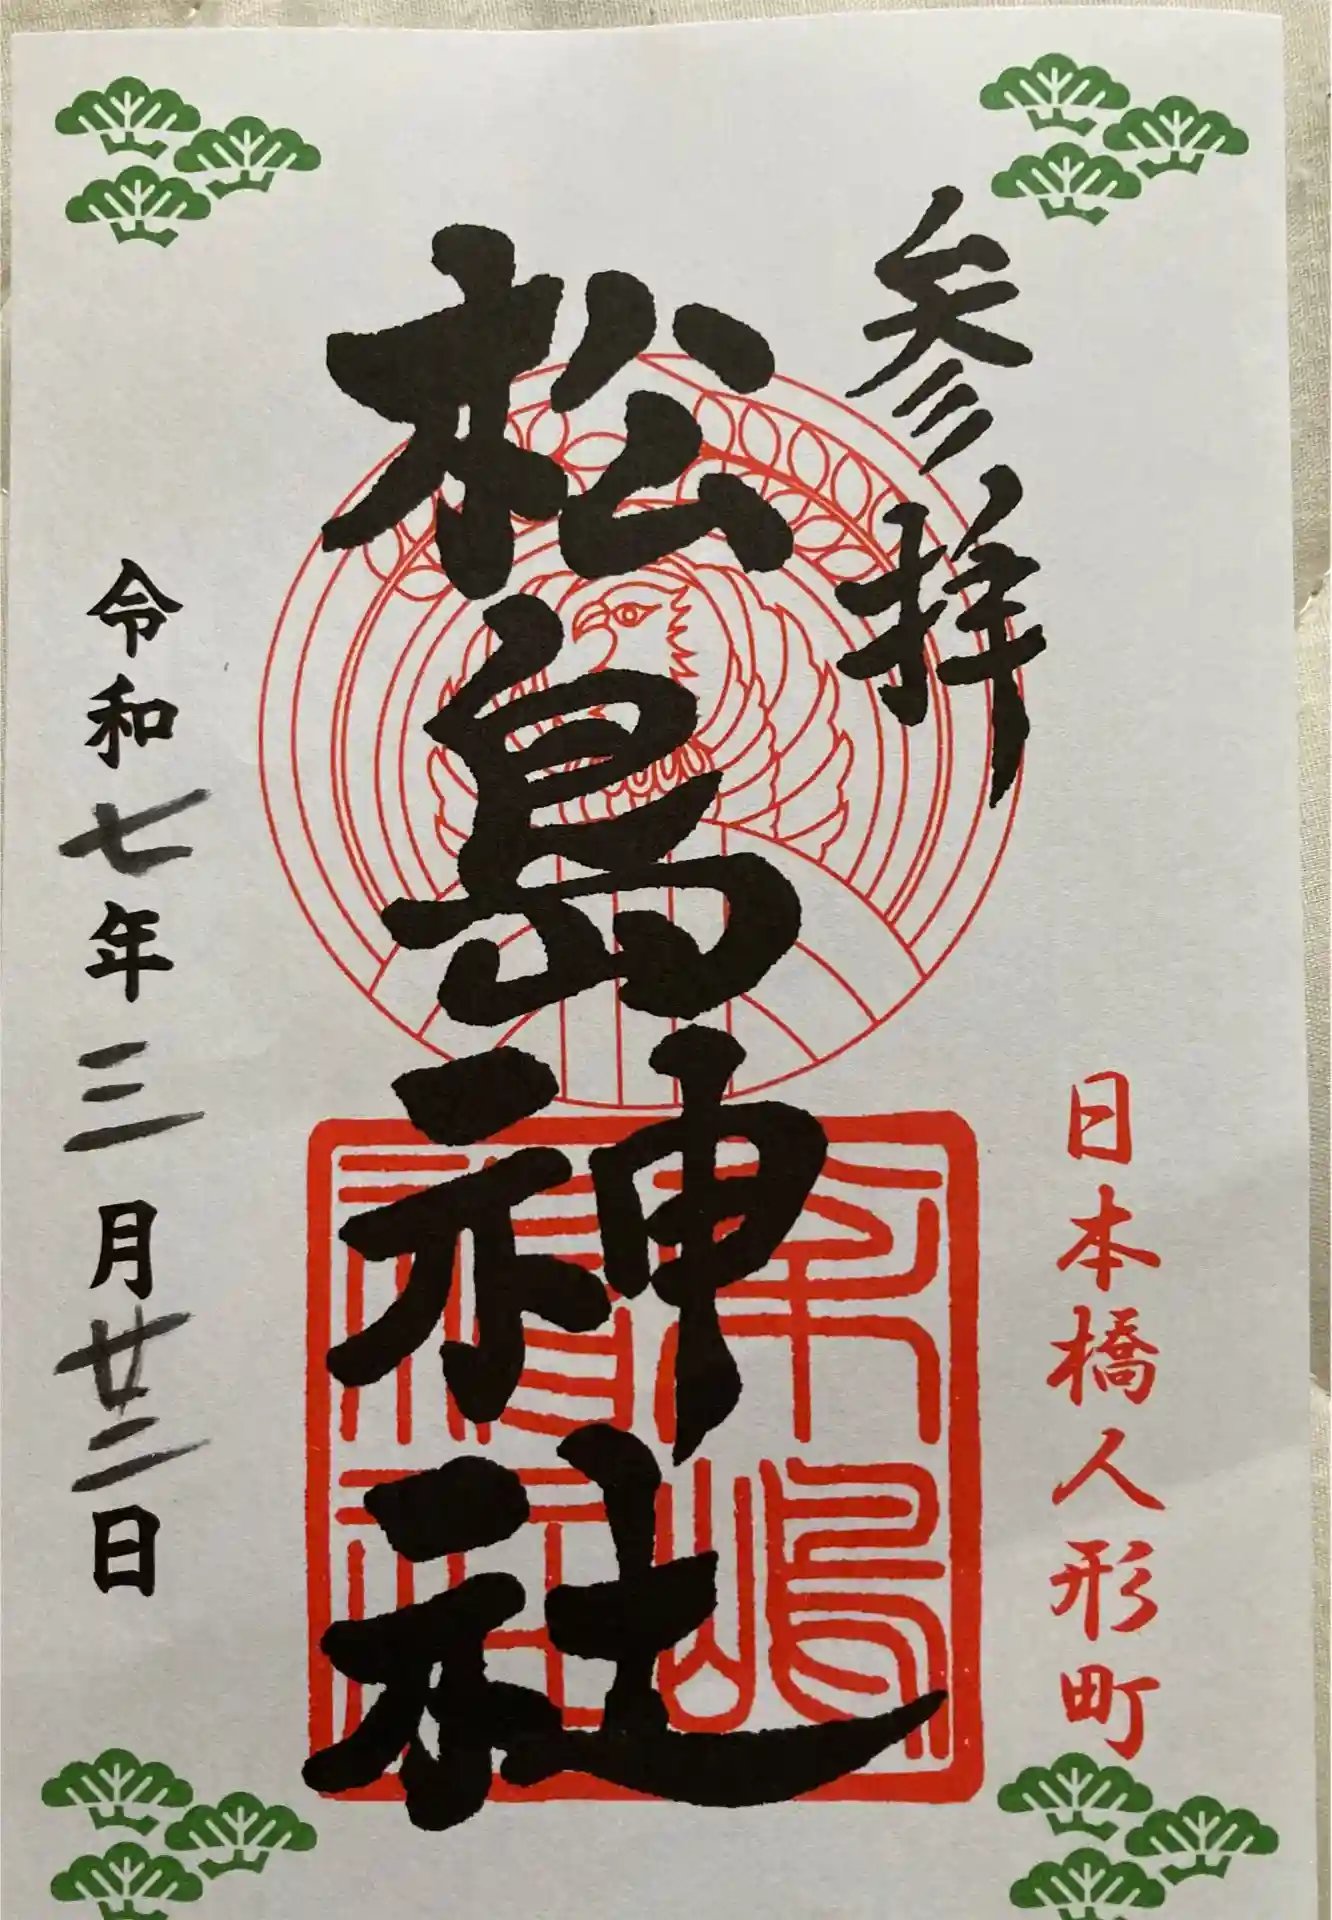 参拝
日本橋人形町
松島神社
令和七年三月廿二日